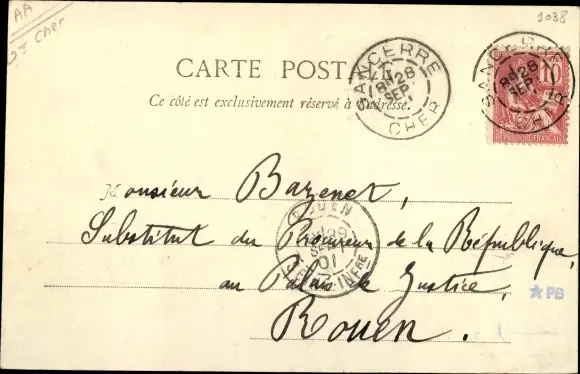 AA
Dt Cher
1038
CARTE POSTALE
Ce côté est exclusivement réservé à l'adresse.
SANCERRE
28
SEPT.
CHER
SANCERRE
28
SEPT.
CHER
10
Monsieur Bazenet,
Substitut du Procureur de la République,
au Palais de Justice,
Rouen.
ROUEN
29
SEPT
01
INFRE
PB